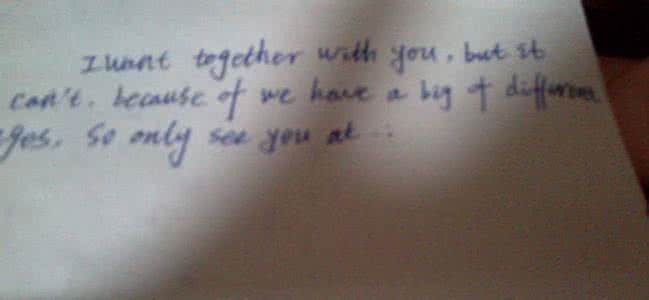 I want together with you, but it
can't. because of we have a big of different
ages. So only see you at ..